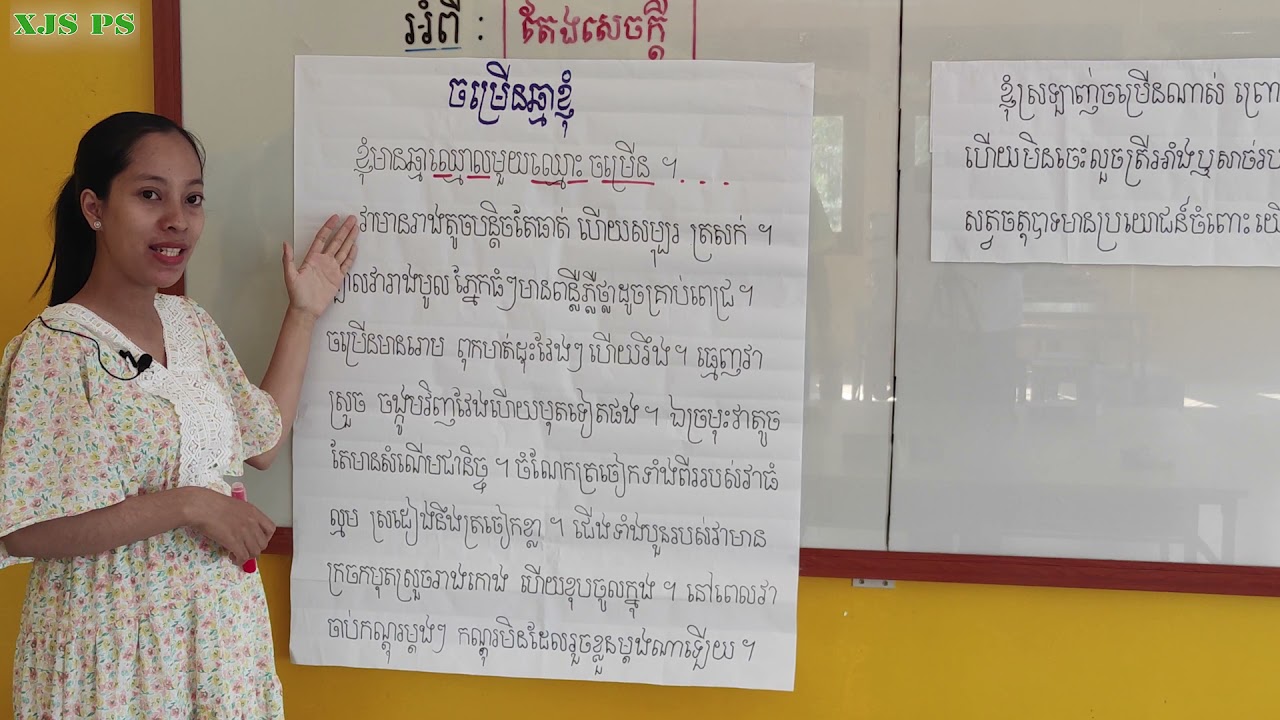 XJS PS
អំពី :
តែងសេចក្ដី
ចម្រើនឆ្មាខ្ញុំ
ខ្ញុំមានឆ្មាឈ្មោលមួយឈ្មោះ ចម្រើន ។ . . .
វាមានរាងតូចបន្តិចតែធាត់ ហើយសម្បុរ ត្រសក់ ។
ក្បាលវារាងមូល ភ្នែកធំៗមានពន្លឺភ្លឺថ្លាដូចគ្រាប់ពេជ្រ ។
ចម្រើនមានរោម ពុកមាត់ដុះវែងៗ ហើយរឹង ។ ធ្មេញវា
ស្រួច ចង្កូមវិញវែងហើយមុតទៀតផង ។ ឯច្រមុះវាតូច
តែមានសំណើមជានិច្ច ។ ចំណែកត្រចៀកទាំងពីររបស់វាធំ
ល្មម ស្រដៀងនឹងត្រចៀកខ្លា ។ ជើងទាំងបួនរបស់វាមាន
ក្រចកមុតស្រួចរាងកោង ហើយខុបចូលក្នុង ។ នៅពេលវា
ចាប់កណ្ដុរម្ដងៗ កណ្ដុរមិនដែលរួចខ្លួនម្ដងណាឡើយ ។
ខ្ញុំស្រឡាញ់ចម្រើនណាស់ ព្រោ
ហើយមិនចេះលួចត្រីអាំងឬសាច់រប
សត្វចតុបាទមានប្រយោជន៍ចំពោះ យើ